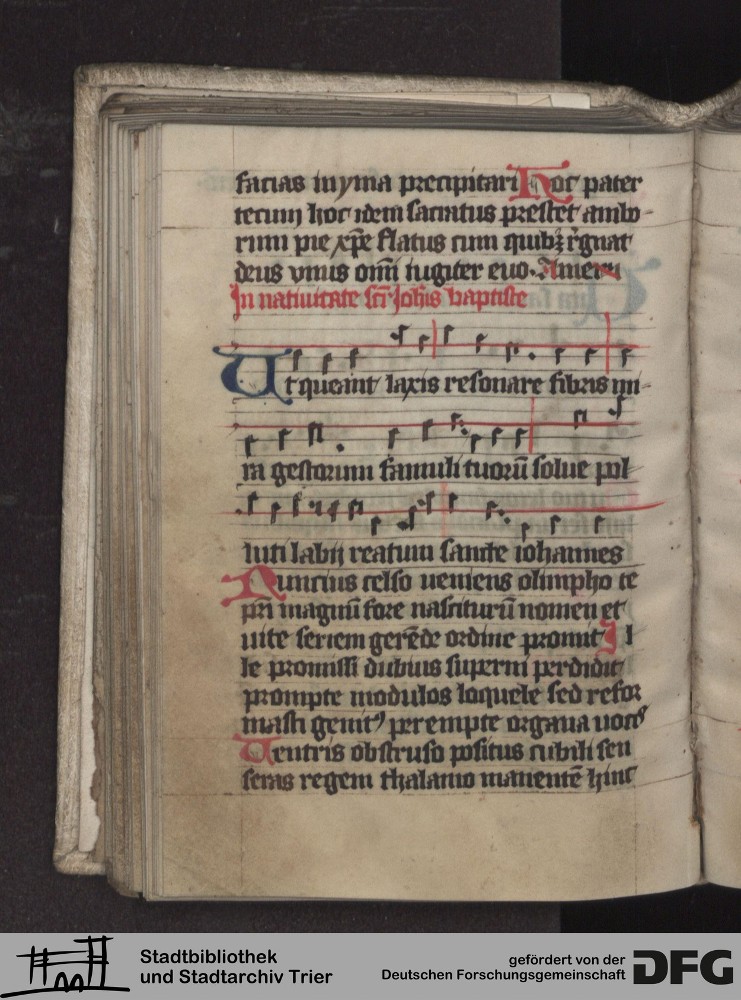 facias in yma precipitari Hoc pater
tecum hoc idem sacratus prestet ambo-
rum pie xpe flatus cum quibz regnat
deus vnus omi iugiter euo. Amen
In natiuitate scti Johis baptiste
Ut queant laxis resonare fibris mi-
ra gestorum famuli tuorū solue pol
luti labij reatum sancte iohannes
Nuncius celso ueniens olimpho te
pri magnū fore nasciturū nomen et
uite seriem gerēde ordine promit Il
le promissi dubius superni perdidit
prompte modulos loquele sed refor
masti genitꝰ perempte organa uocis
Uentris obstruso positus cubili sen
seras regem thalamo manentē hinc
Stadtbibliothek
und Stadtarchiv Trier
gefördert von der
Deutschen Forschungsgemeinschaft
DFG